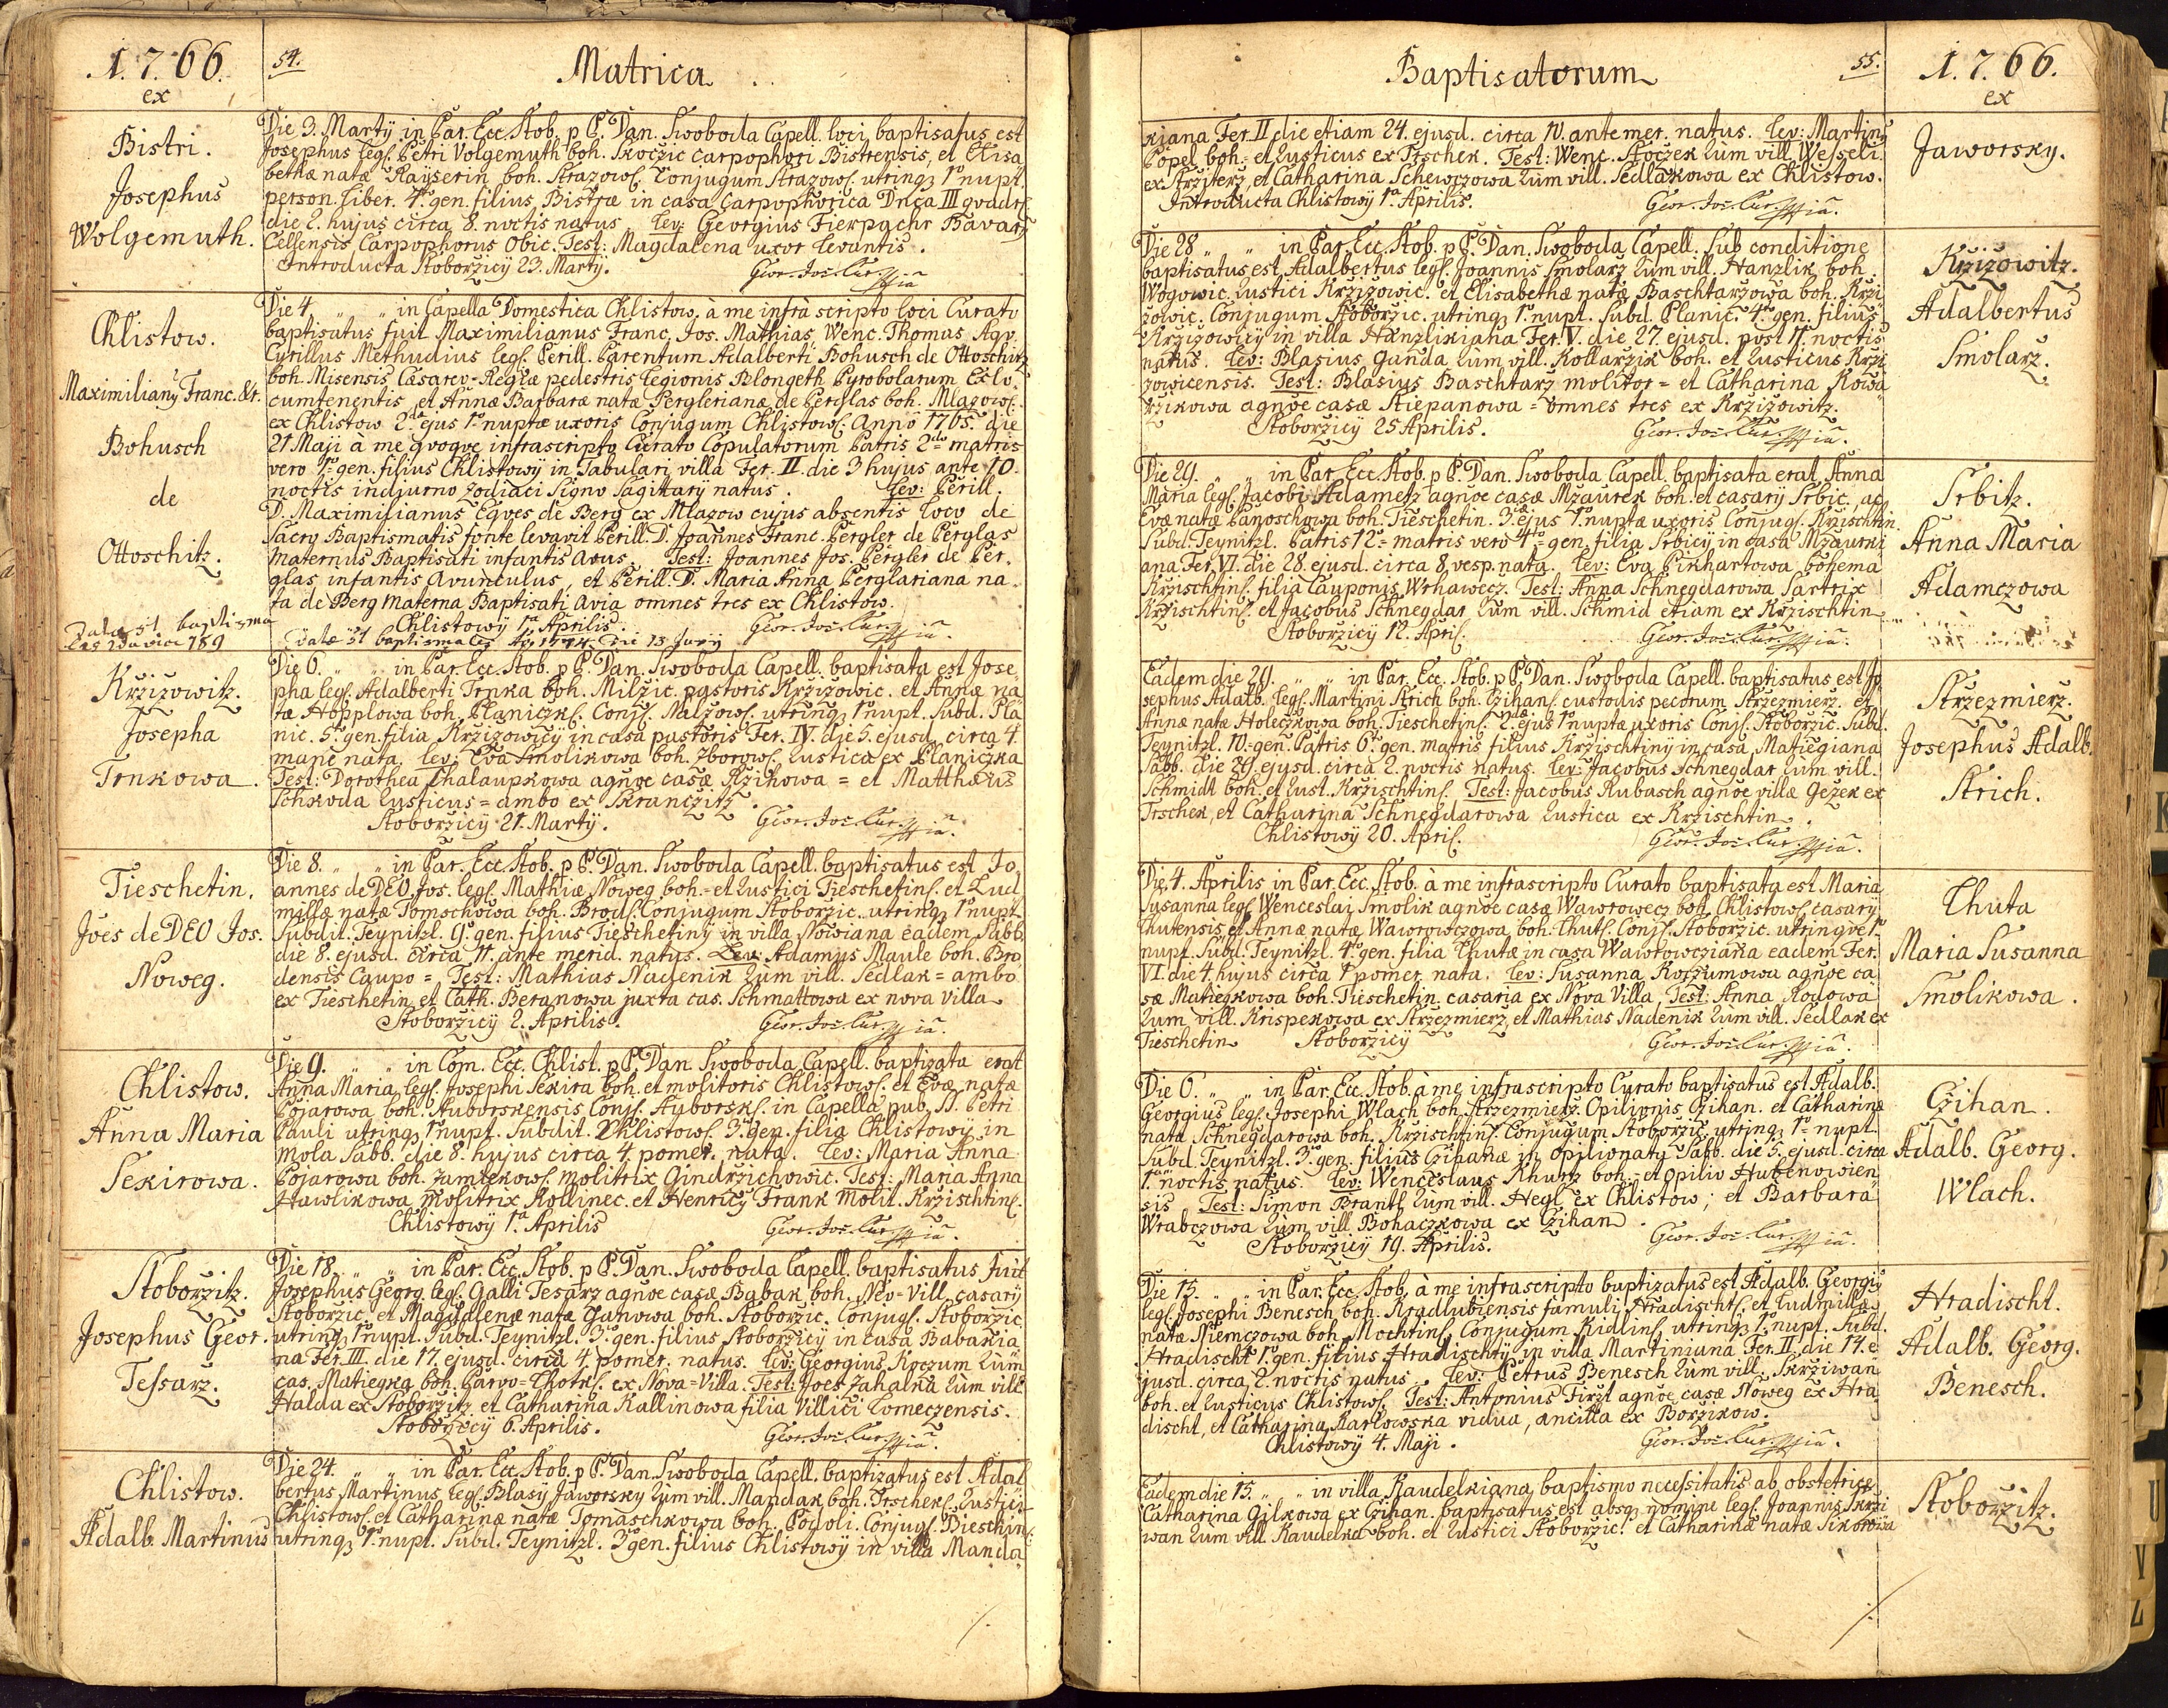 1.7.66.
ex
54.
Matrica
Bistri.
Josephus
Wolgemuth.
Die 3. Martÿ in Par. Ecc. Stob. p P. Dan. Swoboda Capell. loci, baptisatus est
Josephus leg. Petri Volgemuth boh. Skoczic carpophori Bistrensis, et Elisa
bethæ natæ Kayserin boh. Strazow. Conjugum Strazow. utrinq 1º nupt.
person. liber. 4º gen. filius, Bistræ in casa Carpophorica Dnca III quadr.
die 2. hujus circa 8. noctis natus Lev: Georgius Fierpachr Bavarꝰ
Cellensis Carpophorus Obic. Test: Magdalena uxor levantis.
Introducta Stoborzicÿ 23. Martÿ. Geor. Jos. Cur. mpia
Chlistow.
Maximilianꝰ Franc. &c.
Bohusch
de
Ottoschitz.
Die 4. " " in Capella Domestica Chlistow. à me infrà scripto loci Curato
baptisatus fuit Maximilianus Franc. Jos. Mathias Wenc. Thomas Aqv.
Cyrillus Methudius leg. Perill. Parentum Adalberti Bohusch de Ottoschitz
boh. Misensis Cæsareo-Regiæ pedestris legionis Plongeth Pyrobolarum Exlo.
cumtenentis, et Annæ Barbaræ natæ Perglerianæ de Perglas boh. Mlazow.
ex Chlistow 2dæ ejus 1º nuptæ uxoris Conjugum Chlistow. Anno 1765. die
21 Maji à me qvoqve infrascripto Curato Copulatorum Patris 2do matris
vero 1º gen. filius Chlistowÿ in Tabulari villa Fer. II. die 3 hujus ante 10.
noctis indiurno zodiaci Signo Sagittarÿ natus. Lev: Perill.
D. Maximilianus Eqves de Berg ex Mlazow cujus absentis loco de
Sacro Baptismatis fonte levavit Perill. D. Joannes Franc. Pergler de Perglas
maternus Baptisati infantis Avus. Test: Joannes Jos. Pergler de Per.
glas infantis Avunculus, et Perill. D. Maria Anna Perglariana na
ta de Berg materna Baptisati avia omnes tres ex Chlistow.
Chlistowÿ 1ª Aprilis. Geor. Jos. Cur. mpia.
Datæ st baptismales Ao 1774 die 13 Junÿ
Krzizowitz.
Josepha
Trnkowa.
Die 6. " " in Par. Ecc. Stob. p P. Dan. Swoboda Capell. baptisata est Jose
pha leg. Adalberti Trnka boh. Milzic. pastoris Krzizowic. et Annæ na
tæ Hopplowa boh. Planiczk. Conj. Nalzow. utrinq 1º nupt. Subd. Pla
nic. 5º gen. filia Krzizowicÿ in casa pastoris Fer. IV. die 5. ejusd. circa 4.
mane nata. Lev: Eva Smolikowa boh. Zborow. Rustica ex Planiczka
Test: Dorothea Chalaupkowa agnoe casæ Rzihowa = et Matthæus
Schkoda Rusticus = ambo ex Skranczitz.
Stoborzicÿ 21. Martÿ. Geor. Jos. Cur. mpia.
Tieschetin.
Joës de DEO Jos.
Noweg.
Die 8. " " in Par. Ecc. Stob. p P. Dan. Swoboda Capell. baptisatus est Jo
annes de DEO Jos. leg. Mathiæ Noweg boh. = et Rustici Tieschetin. et Lud
millæ natæ Tomschowa boh. Brod. Conjugum Stoborzic. utrinq 1º nupt.
Subdit. Teynitzl. 9º gen. filius Tieschetinÿ in villa Nowiana eadem Sabb.
die 8. ejusd. circa 11. ante merid. natus. Lev: Adamus Maule boh. Bro
densis Caupo = Test: Mathias Nadenik Rum vill. Sedlak = ambo
ex Tieschetin, et Cath. Beranowa juxta cas. Schmattowa ex nova villa
Stoborzicÿ 2. Aprilis. Geor. Jos. Cur. mpia.
Chlistow.
Anna Maria
Sekirowa.
Die 9. " " in Com. Ecc. Chlist. p P. Dan. Swoboda Capell. baptizata erat
Anna Maria leg. Josephi Sekira boh. et molitoris Chlistow. et Evæ natæ
Pojarowa boh. Auborskensis Conj. Auborsk. in Capella pub. SS. Petri
Pauli utrinq 1º nupt. Subdit. Chlistow. 3º gen. filia Chlistowÿ in
mola Sabb. die 8. hujus circa 4. pomer. nata. Lev: Maria Anna
Pojarowa boh. Zamlekow. molitrix Gindrzichowic. Test: Maria Anna
Hawlikowa Molitrix Kollinec. et Henricÿ Frank Molit. Krzischtin.
Chlistowÿ 1ª Aprilis Geor. Jos. Cur. mpia.
Stoborzitz.
Josephus Geor.
Tessarz.
Die 18. " " in Par. Ecc. Stob. p P. Dan. Swoboda Capell. baptisatus fuit
Josephus Georg. leg. Galli Tesarz agnoe casæ Babak boh. Neo-Vill. casarÿ
Stoborzic. et Magdalenæ natæ Ganowa boh. Stoborzic. Conjug. Stoborzic.
utrinq 1º nupt. Subd. Teynitzl. 3º gen. filius Stoborzicÿ in casa Babakia
na Fer. III. die 17. ejusd. circa 4. pomer. natus. Lev: Georgius Koczum Rum
cas. Matiegka boh. Parvo-Lhotk. ex Nova-Villa. Test: Joes Zahalka Rum vill.
Halda ex Stoborzitz, et Catharina Kallinowa filia Villici Lomeczensis.
Stoborzicÿ 6. Aprilis. Geor. Jos. Cur. mpia.
Chlistow.
Adalb. Martinus
Die 24. " " in Par. Ecc. Stob. p P. Dan. Swoboda Capell. baptizatus est Adal
bertus Martinus leg. Blasÿ Jaworsky Rum vill. Mandak boh. Trschek. Rustici
Chlistow. et Catharinæ natæ Tomaschkowa boh. Powoli. Conjug. Dieschin.
utrinq 1º nupt. Subd. Teynitzl. 3º gen. filius Chlistowÿ in villa Manda
Baptisatorum
55.
1.7.66.
ex
Jaworsky.
kiana Fer. II die etiam 24. ejusd. circa 10. antemer. natus. Lev: Martinꝰ
Popel boh. et Rusticus ex Trschek. Test: Wenc. Stoczek Rum vill. Wesseli.
ex Strziterz, et Catharina Schewczowa Rum vill. Sedlakowa ex Chlistow.
Introducta Chlistowÿ 1ª Aprilis. Geor. Jos. Cur. mpia.
Krzizowitz.
Adalbertus
Smolarz.
Die 28 " " in Par. Ecc. Stob. p P. Dan. Swoboda Capell. Sub conditione
baptisatus est Adalbertus leg. Joannis Smolarz Rum vill. Hanzlik boh.
Wogowic. Rustici Krzizowic. et Elisabethæ natæ Baschtarzowa boh. Krzi
zowic. Conjugum Stoborzic. utrinq 1º nupt. Subd. Planic. 4º gen. filius
Krzizowicÿ in villa Hanzlikiana Fer. V. die 27. ejusd. post 11. noctis
natus. Lev: Blasius Ganda Rum vill. Kollarzik boh. et Rusticus Krzi
zowicensis. Test: Blasius Baschtarz molitor = et Catharina Kowa
rzikowa agnoe casæ Stiepanowa = omnes tres ex Krzizowitz.
Stoborzicÿ 25 Aprilis. Geor. Jos. Cur. mpia.
Srbitz.
Anna Maria
Adamczowa
Die 29. " " in Par. Ecc. Stob. p P. Dan. Swoboda Capell. baptisata erat Anna
Maria leg. Jacobi Adametz agnoe casæ Mzaurek boh. et casarÿ Srbic, ac
Evæ natæ Panoschowa boh. Tieschetin. 3æ ejus 1º nuptæ uxoris Conjug. Krzischtin.
Subd. Teynitzl. Patris 12º matris vero 4to gen. filia Srbicÿ in casa Mzaurki
ana Fer. VI. die 28. ejusd. circa 8. vesp. nata. Lev: Eva Pikhartowa bohema
Krzischtin. filia Cauponis Wrhawecz. Test: Anna Schnegdarowa Sartrix
Krzischtin. et Jacobus Schnegdar Rum vill. Schmid etiam ex Krzischtin
Stoborzicÿ 12. April. Geor. Jos. Cur. mpia.
Strzezmierz.
Josephus Adalb.
Strich.
Eadem die 29. " " in Par. Ecc. Stob. p P. Dan. Swoboda Capell. baptisatus est Jo
sephus Adalb. leg. Martini Strich boh. Czihan. custodis pecorum Strzezmierz. et
Annæ natæ Holeczkowa boh. Tieschetin. 2dæ ejus 1º nuptæ uxoris Conj. Stoborzic. Subd.
Teynitzl. 10. gen. Patris 6º gen. matris filius Krzischtinÿ in casa Matiegiana
Sabb. die 29. ejusd. circa 2. noctis natus. Lev: Jacobus Schnegdar Rum vill.
Schmidt boh. et Rust. Krzischtin. Test: Jacobus Kubasch agnoe villæ Gezek ex
Trschek, et Catharina Schnegdarowa Rustica ex Krzischtin.
Chlistowÿ 20. April. Geor. Jos. Cur. mpia.
Lhuta
Maria Susanna
Smolikowa.
Die 4. Aprilis in Par. Ecc. Stob. à me infrascripto Curato baptisata est Maria
Susanna leg. Wenceslai Smolik agnoe casæ Wawrowecz boh. Chlistow. casarÿ
Lhutensis et Annæ natæ Wawrowczowa boh. Lhut. Conj. Stoborzic. utrinqve 1º
nupt. Subd. Teynitzl. 4to gen. filia Lhutæ in casa Wawrowcziana eadem Fer.
VI. die 4. hujus circa 1 pomer. nata. Lev: Susanna Koczumowa agnoe ca
sæ Matiegkowa boh. Tieschetin. casaria ex Nova Villa, Test: Anna Kodowa
Rum vill. Krispekowa ex Strzezmierz, et Mathias Nadenik Rum vill. Sedlak ex
Tieschetin Stoborzicÿ Geor. Jos. Cur. mpia.
Czihan.
Adalb. Georg.
Wlach.
Die 6. " " in Par. Ecc. Stob. à me infrascripto Curato baptisatus est Adalb.
Georgius leg. Josephi Wlach boh. Strzezmierz. Opilionis Czihan. et Catharinæ
natæ Schnegdarowa boh. Krzischtin. Conjugum Stoborzic. utrinq 1º nupt.
Subd. Teynitzl. 3º gen. filius Czihanæ in opilionatu Sabb. die 5. ejusd. circa
1. noctis natus. Lev: Wenceslaus Khurz boh. et Opilio Hubenowien
sis Test: Simon Brantl Rum vill. Hegl ex Chlistow; et Barbara
Wrabczowa Rum vill. Bohaczkowa ex Czihan.
Stoborzicÿ 19. Aprilis. Geor. Jos. Cur. mpia.
Hradischt.
Adalb. Georg.
Benesch.
Die 15. " " in Par. Ecc. Stob. à me infrascripto baptizatus est Adalb. Georgiꝰ
leg. Josephi Benesch boh. Kradlubiensis famuli Hradischt. et Ludmillæ
natæ Niemczowa boh. Mochtin. Conjugum Kidlin. utrinq 1º nupt. Subd.
Hradischt 1º gen. filius Hradischtÿ in villa Martiniana Fer. II. die 14. e
jusd. circa 2. noctis natus. Lev: Petrus Benesch Rum vill. Skrziwan
boh. et Rusticus Chlistow. Test: Antonius Firzt agnoe casæ Noweg ex Hra
discht, et Catharina Karlowska vidua, ancilla ex Borzikow.
Chlistowÿ 4. Maji. Geor. Jos. Cur. mpia.
Stoborzitz.
Eadem die 15. " " in villa Kaudelkiana baptismo necessitatis ab obstetrice
Catharina Gilkowa ex Czihan. baptisatus est absq nomine leg. Joannis Skrzi
wan Rum vill. Kaudelka boh. et Rustici Stoborzic. et Catharinæ natæ Sikorowa